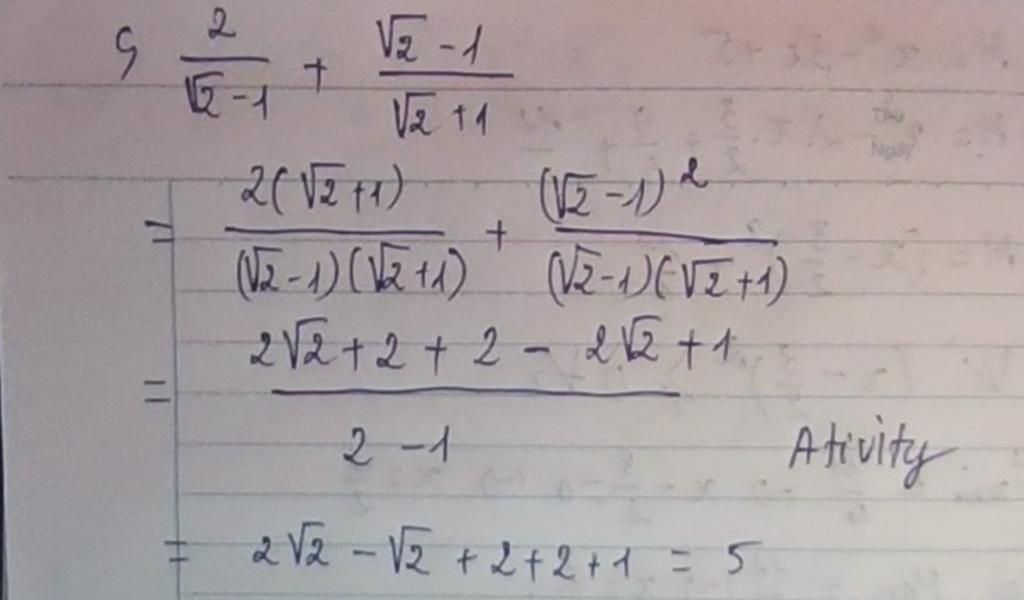 c, 2/(√2 - 1) + (√2 - 1)/(√2 + 1)
= 2(√2 + 1)/((√2 - 1)(√2 + 1)) + (√2 - 1)²/((√2 - 1)(√2 + 1))
= (2√2 + 2 + 2 - 2√2 + 1)/(2 - 1)
Ativity
= 2√2 - √2 + 2 + 2 + 1 = 5